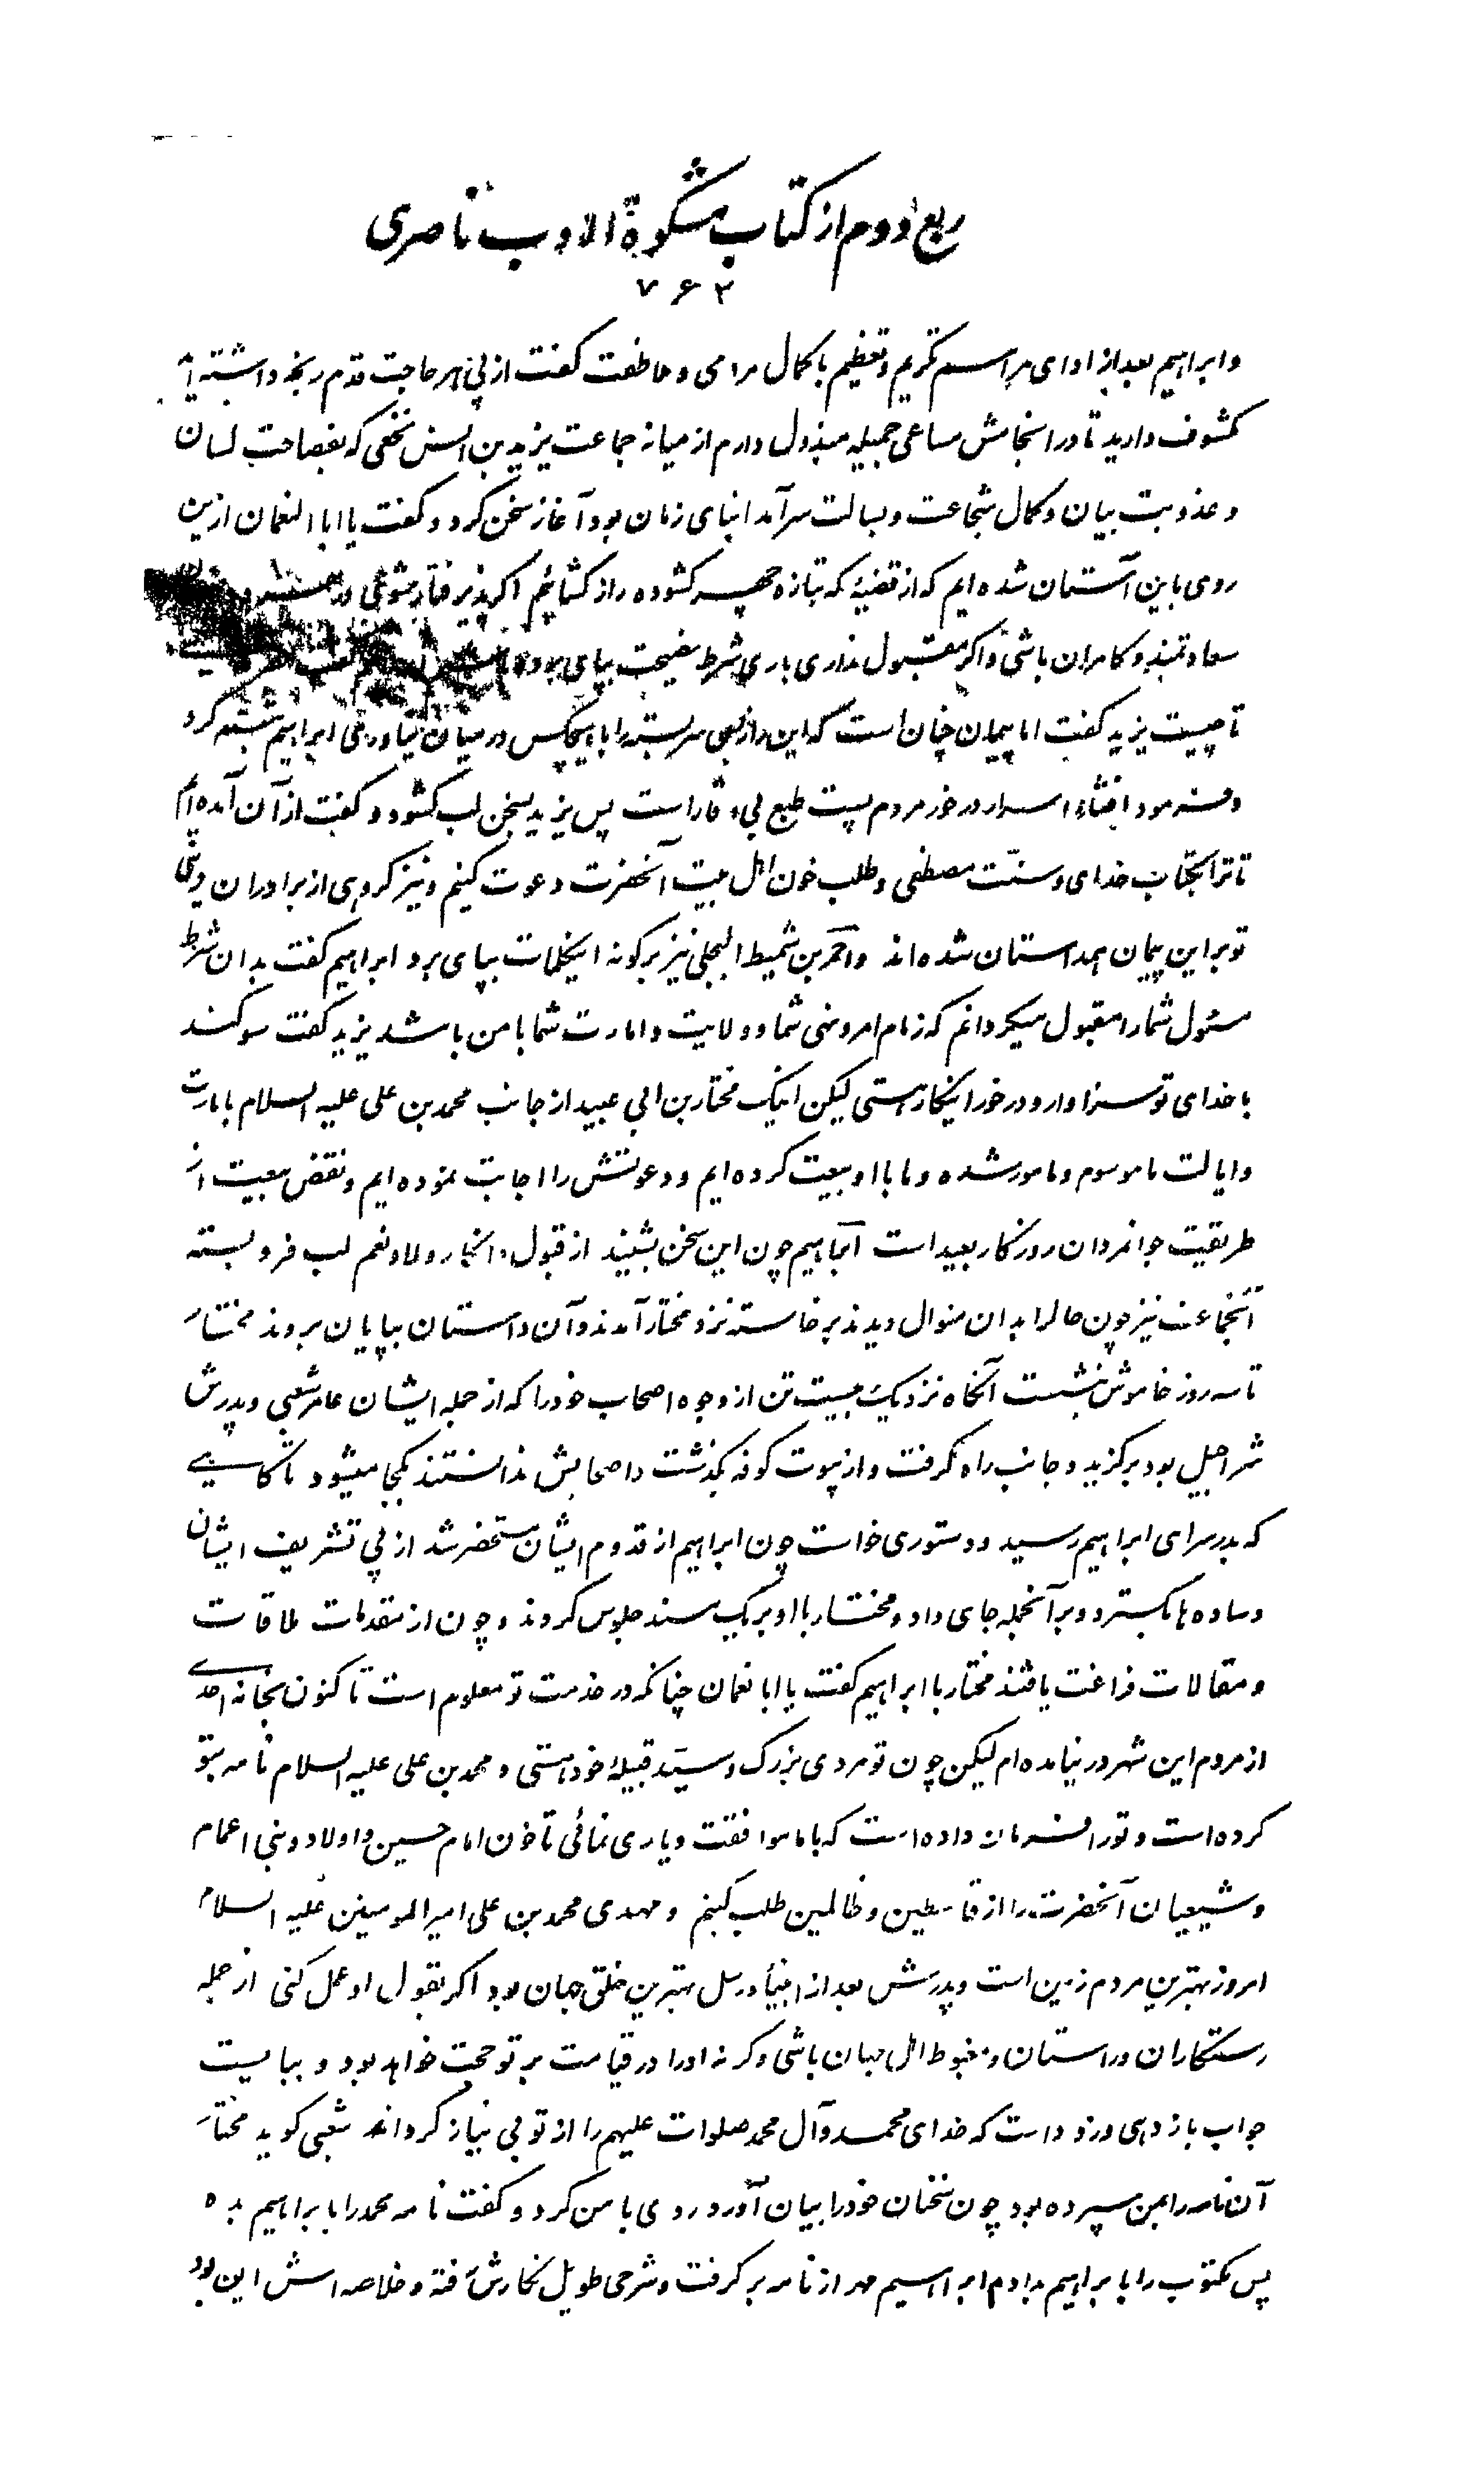 ربع دوم از کتاب مشکوة الادب ناصری
۷۶۲
و ابراهیم بعد از ادای مراسم تکریم و تعظیم با کمال مرامی و عاطفت کفت از پی هر حاجت قدم رنجه داشته‌اید
مکشوف دارید تا در انجامش مساعی جمیله مبذول دارم از میانه جماعت یزید بن انس نخعی که بفصاحت لسان
و عذوبت بیان و کمال شجاعت و بسالت سرآمد ابنای زمان بود آغاز سخن کرد و کفت یا ابا النعمان ازین
روی باین آستان شده‌ایم که از قضیهٔ که بتازه چهره کشوده راز کشائیم اکر پذیرفتار شوی در
سعادتمند و کامران باشی و اکر مقبول نداری باری شرط نصیحت بپای بوده
تا چیست یزید کفت اما پیمان چنان است که این راز سربسته را با هیچکس در میان نیاوری ابراهیم تبسم کرد
و فرمود افشاء اسرار در خور مردم پست طبع بی وقار است پس یزید بسخن لب کشود و کفت از آن آمده‌ایم
تا ترا بکتاب خدای و سنّت مصطفی و طلب خون اهل بیت آنحضرت دعوت کنیم و نیز کروهی از برادران دینی
تو بر این پیمان همداستان شده‌اند و احمر بن شمیط البجلی نیز برکونه اینکلمات بپای برد ابراهیم کفت بدان شرط
مسئول شما را مقبول میکردانم که زمام امر و نهی شما و ولایت و امارت شما با من باشد یزید کفت سوکند
با خدای تو سزاوار و در خور اینکار هستی لیکن اینک مختار بن ابی عبید از جانب محمد بن علی علیه السلام بامارت
و ایالت ما موسوم و مامور شده و ما با او بیعت کرده‌ایم و دعوتش را اجابت نموده‌ایم و نقض بیعت از
طریقت جوانمردان روزکار بعید است ابراهیم چون این سخن بشنید از قبول و انکار و لا و نعم لب فرو بسته
آنجماعت نیز چون حال را بدان منوال دیدند برخاسته نزد مختار آمدند و آن داستان بپایان بردند مختار
تا سه روز خاموش بنشست آنکاه نزدیک بیست تن از وجوه اصحاب خود را که از جمله ایشان عامر شعبی و پدرش
شراحیل بود برکزید و جانب راه کرفت و از بیوت کوفه بکذشت و اصحابش ندانستند بکجا میشود تا کاهی
که بدر سرای ابراهیم رسید و دستوری خواست چون ابراهیم از قدوم ایشان مستحضر شد از پی تشریف ایشان
وساده‌ها بکسترد و بر آنجمله جای داد و مختار با او بر یک مسند جلوس کردند و چون از مقدمات ملاقات
و مقالات فراغت یافتند مختار با ابراهیم کفت یا ابا نعمان چنانکه در خدمت تو معلوم است تا کنون بخانه احدی
از مردم این شهر در نیامده‌ام لیکن چون تو مردی بزرک و سیّد قبیلهٔ خود هستی و محمد بن علی علیه السلام نامه بتو
کرده است و تو را فرمان داده است که با ما موافقت و یاری نمائی تا خون امام حسین و اولاد و بنی اعمام
و شیعیان آنحضرت را از قاسطین و ظالمین طلب کنیم و مهدی محمد بن علی امیر المومنین علیه السلام
امروز بهترین مردم زمین است و پدرش بعد از انبیأ و رسل بهترین خلق جهان بود اکر بقول او عمل کنی از جمله
رستکاران و راستان و مغبوط اهل جهان باشی وکرنه او را در قیامت بر تو حجت خواهد بود و ببایست
جواب باز دهی و زود است که خدای محمد و آل محمد صلوات علیهم را از تو بی نیاز کرداند شعبی کوید مختار
آن نامه را بمن سپرده بود چون سخنان خود را بیان آورد روی با من کرد و کفت نامه محمد را با ابراهیم بده
پس مکتوب را با ابراهیم بدادم ابراهیم مهر از نامه بر کرفت و شرحی طویل نکارش رفته و خلاصه‌اش این بود